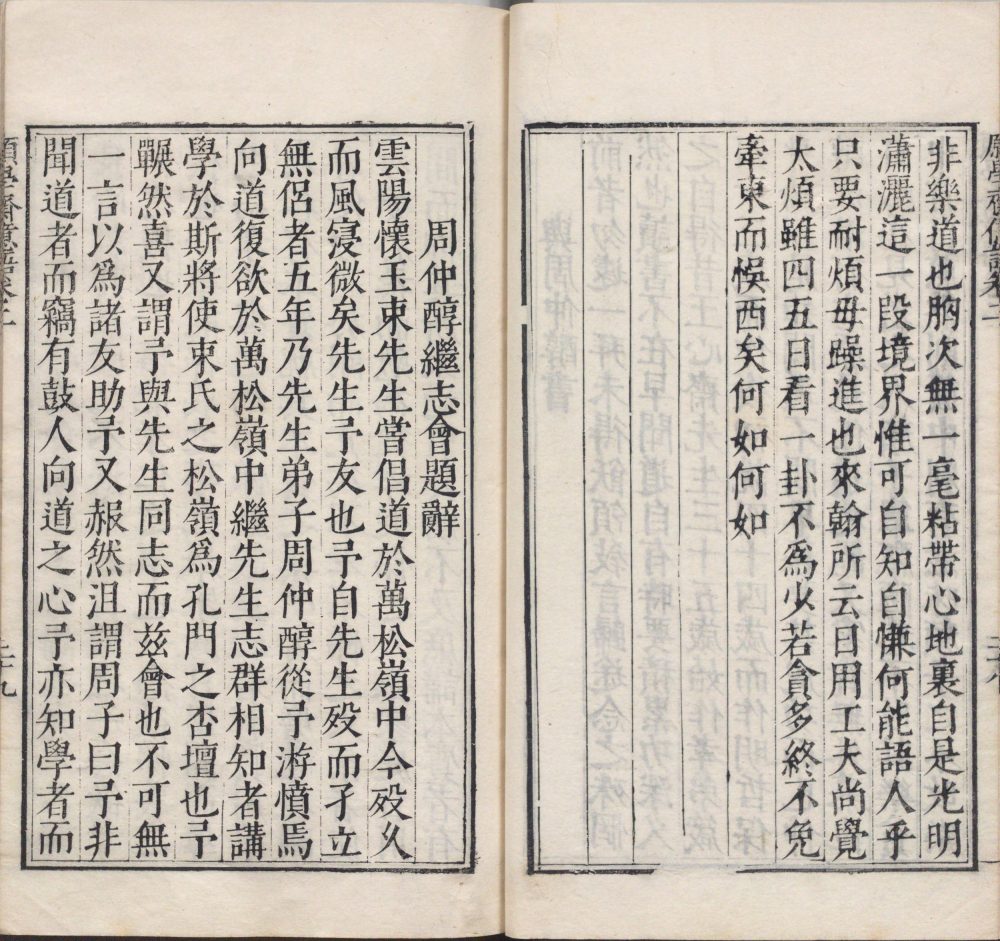 非樂道也胸次無一毫粘帶心地裏自是光明
瀟灑這一段境界惟可自知自慊何能語人乎
只要耐煩毋躁進也來翰所云日用工夫尚覺
太煩雖四五日看一卦不為少若貪多終不免
牽東而悞西矣何如何如
周仲醇繼志會題辭
雲陽懷玉束先生嘗倡道於萬松嶺中今歿久
而風寖微矣先生予友也予自先生歿而孑立
無侶者五年乃先生弟子周仲醇從予游憤焉
向道復欲於萬松嶺中繼先生志群相知者講
學於斯將使束氏之松嶺為孔門之杏壇也予
囅然喜又謂予與先生同志而茲會也不可無
一言以為諸友助予又赧然沮謂周子曰予非
聞道者而竊有鼓人向道之心予亦知學者而